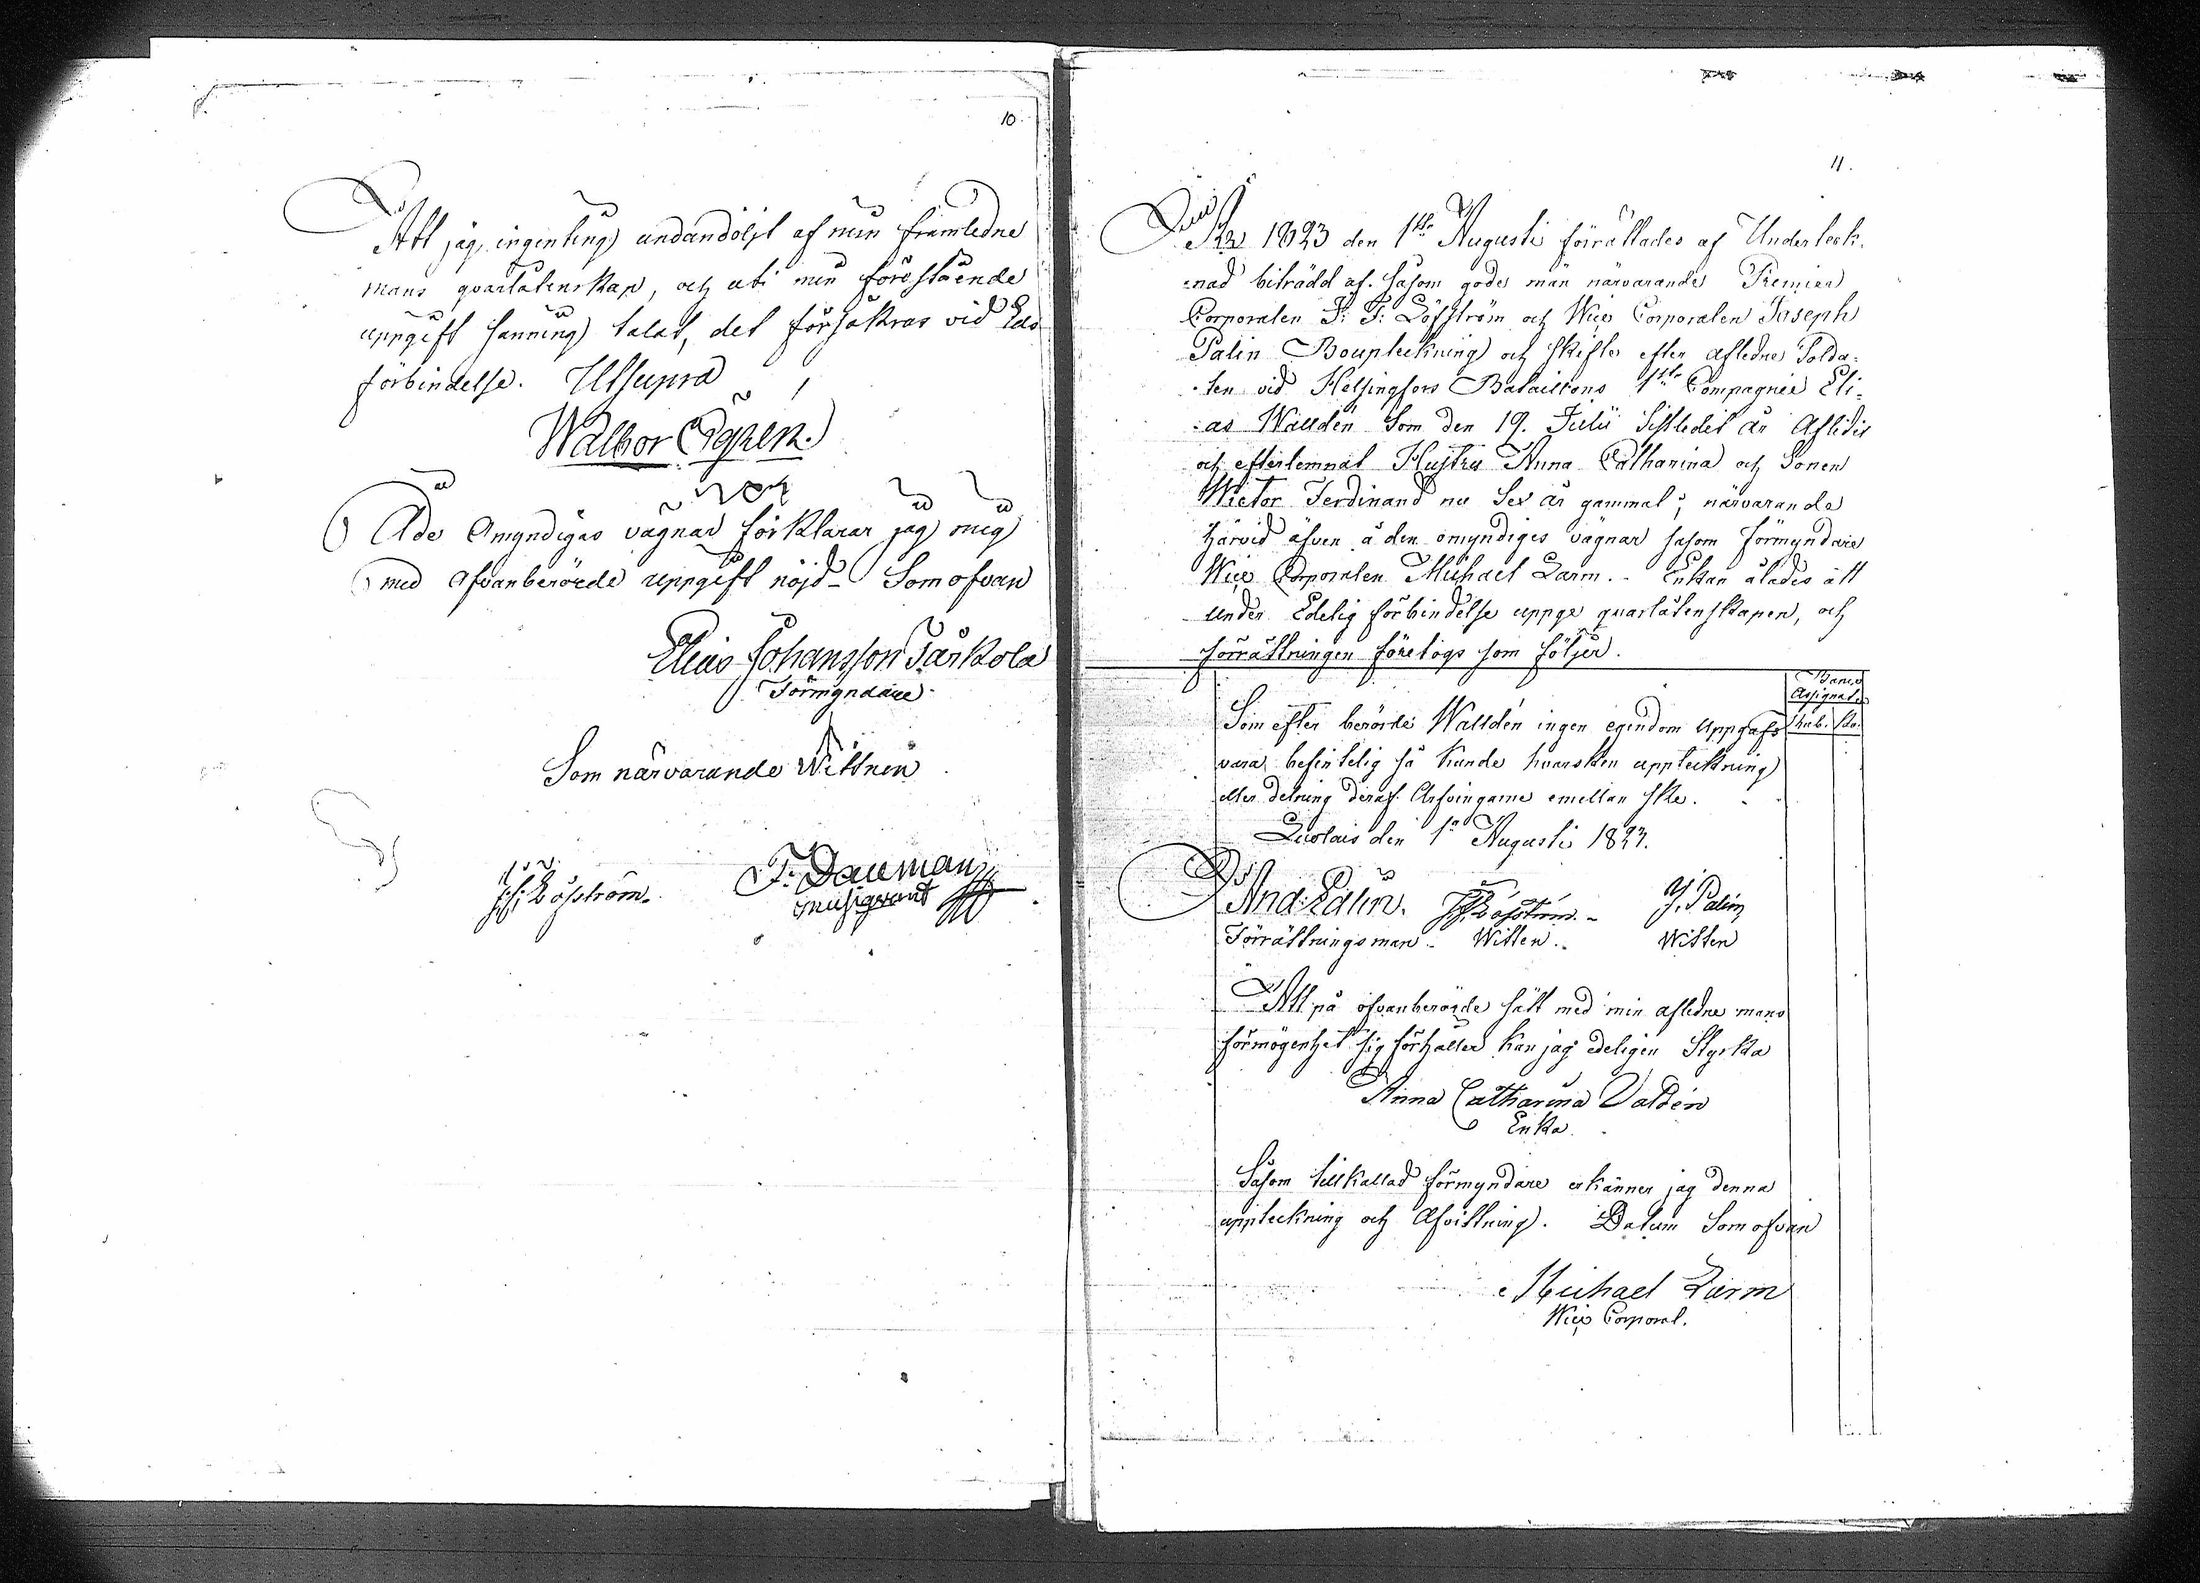 10.
Att jag ingenting undandöljt af min framledne
mans qvarlåtenskap, och uti min förestående
uppgift sanning talat, det försäkras vid Eds
förbindelse. Utsupra
Walbor
Å de Omyndigas vägnar förklarar jag mig
med ofvanberörde uppgift nöjd – Som ofvan
Elias Johansson Tarkola
Förmyndare.
Som närvarande Wittnen
J. F. Löfström. F. Dauman
musigvant
11.
År 1823 den 1ste Augusti förrättades af Underteck-
nad biträdd af. såsom gode män närvarande Premier
Corporalen J: F: Löfström och Wice Corporalen Joseph
Palin Boupteckning och skifte efter afledne Solda-
ten vid Helsingfors Bataillons 1ste Compagnie Eli-
as Walldén Som den 19. Julii Sistledit år Aflidit
och efterlemnat Hustru Anna Catharina och Sonen
Wictor Ferdinand nu Sex år gammal; närvarande
härvid äfven å den omyndiges vägnar såsom förmyndare
Wice Corporalen Michael Larm. – Enkan ålades att
under Edelig förbindelse uppge qvarlåtenskapen, och
förrättningen företogs som följer.
Banco
Assignat.
Rub. Ko.
Som efter berörde Walldén ingen egendom uppgafs
vara befintelig så kunde hvarken uppteckning
eller delning deraf Arfvingarne emellan ske.
den 1a Augusti 1823.
And: Edlin. J. F. Löfström. – J. Palin
Förrättningsman – Witten. – Witten
Att på ofvanberörde sätt med min afledne mans
förmögenhet sig förhåller kan jag edeligen Styrka
Anna Catharina Valdén
Enka.
Såsom tillkallad förmyndare erkänner jag denna
uppteckning och Afvittring. Datum Som ofvan
Michael Larm
Wice Corporal.